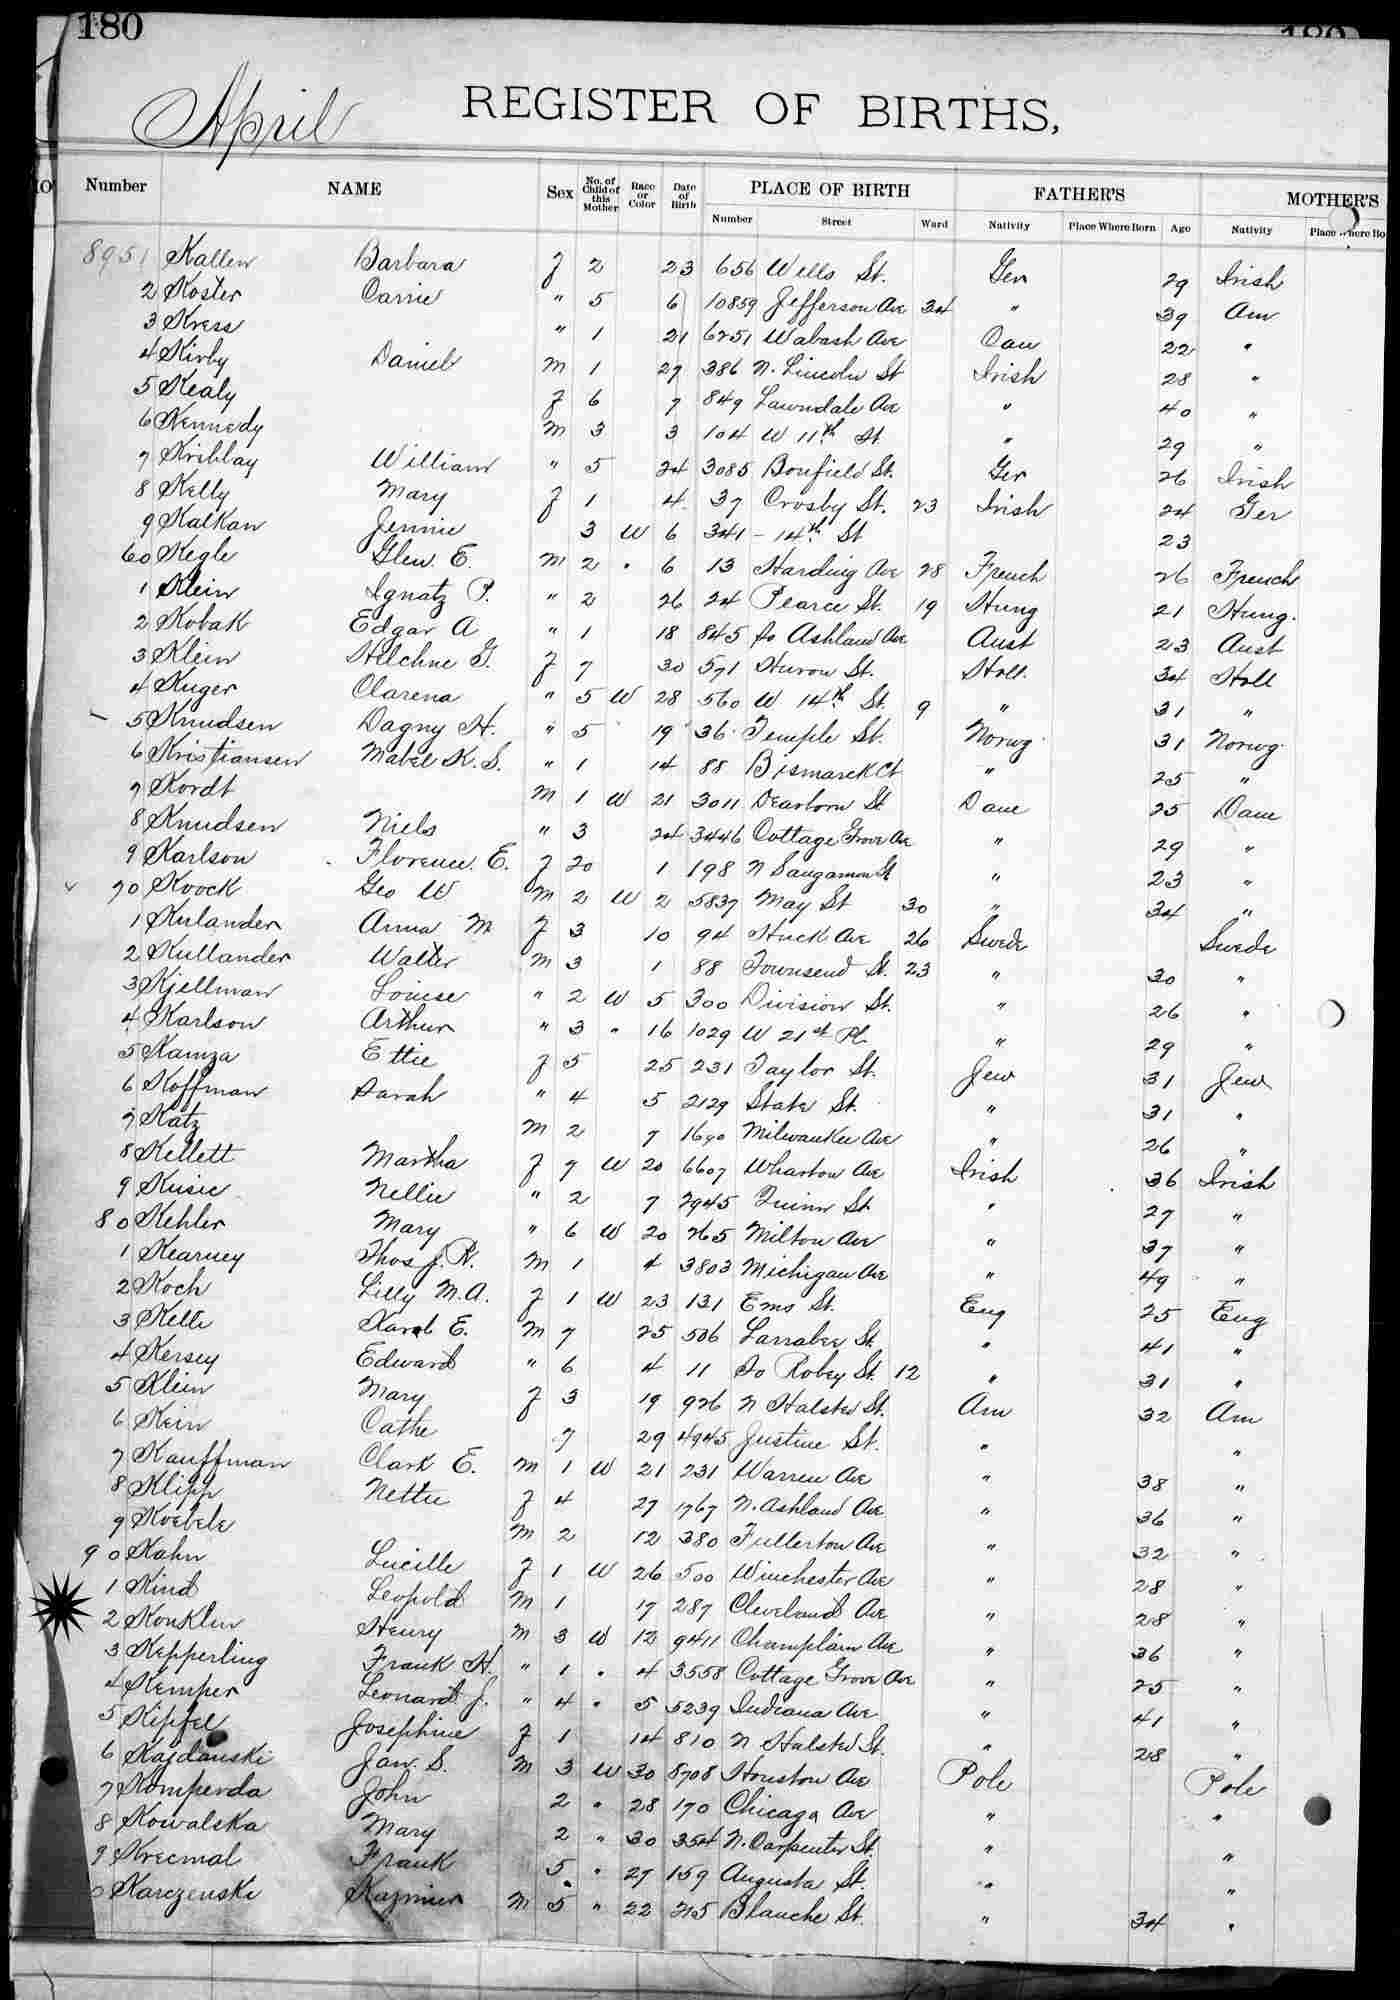 180
180
April REGISTER OF BIRTHS,
Number NAME Sex No. of Child of this Mother Race or Color Date of Birth PLACE OF BIRTH FATHER'S MOTHER'S
Number Street Ward Nativity Place Where Born Age Nativity Place Where Bo
8951 Kallen Barbara F 2 23 656 Wells St. Ger 29 Irish
2 Koster Carrie " 5 6 10859 Jefferson Ave 34 " 39 Am
3 Kress " 1 21 6251 Wabash Ave Can 22 "
4 Kirby Daniel M 1 27 386 N. Lincoln St Irish 28 "
5 Kealy F 6 7 849 Lawndale Ave " 40 "
6 Kennedy M 3 3 104 W 11th St. " 29 "
7 Krihlay William " 5 24 3085 Bonfield St. Ger 26 Irish
8 Kelly Mary F 1 4 37 Crosby St. 23 Irish 24 Ger
9 Kalkan Jennie 3 W 6 341 - 14th St 23
60 Kegle Glen. E. M 2 " 6 13 Harding Ave 28 French 26 French
1 Klein Ignatz P. " 2 26 24 Pearce St. 19 Hung 21 Hung.
2 Kobak Edgar A " 1 18 845 So Ashland Ave Aust 23 Aust
3 Klein Helchne G. F 7 30 571 Huron St. Holl. 34 Holl
4 Kuger Clarena " 5 W 28 560 W 14th St. 9 " 31 "
5 Knudsen Dagny H. " 5 19 36 Temple St. Norwg. 31 Norwg.
6 Kristiansen Mabel K. S. " 1 14 88 Bismarck Ct " 25 "
7 Kordt M 1 W 21 3011 Dearborn St Dane 25 Dane
8 Knudsen Niels " 3 24 3446 Cottage Grove Ave " 29 "
9 Karlson Florence. E. F 20 1 198 N Sangamon St " 23 "
70 Koock Geo W M 2 W 2 5837 May St 30 " 34 "
1 Kulander Anna M F 3 10 94 Huck Ave 26 Swede Swede
2 Kullander Walter M 3 1 88 Townsend St. 23 " 30 "
3 Kjellman Louise " 2 W 5 300 Division St. " 26 "
4 Karlson Arthur " 3 " 16 1029 W 21st Pl. " 29 "
5 Kamza Ettie F 5 25 231 Taylor St. Jew 31 Jew
6 Koffman Sarah " 4 5 2129 State St. " 31 "
7 Katz M 2 7 1690 Milwaukee Ave " 26 "
8 Kellett Martha F 7 W 20 6607 Wharton Ave Irish 36 Irish
9 Kusic Nellie " 2 7 2945 Quinn St. " 27 "
80 Kehler Mary " 6 W 20 265 Milton Ave " 37 "
1 Kearney Thos J. R. M 1 4 3803 Michigan Ave " 49 "
2 Koch Lilly M. A. F 1 W 23 131 Ems St. Eng 25 Eng
3 Kelle Karl E. M 7 25 506 Larrabee St. " 41 "
4 Kersey Edward " 6 4 11 So Robey St. 12 " 31 "
5 Klein Mary F 3 19 926 N Halsted St. Am 32 Am
6 Kein Cathe 7 29 4945 Justine St. " "
7 Kauffman Clark E. M 1 W 21 231 Warren Ave " 38 "
8 Klipp Nettie F 4 27 1767 N. Ashland Ave " 36 "
9 Koebele M 2 12 380 Fullerton Ave " 32 "
90 Kahn Lucille F 1 W 26 500 Winchester Ave " 28 "
1 Kind Leopold M 1 17 287 Cleveland Ave " 28 "
2 Konklin Henry M 3 W 12 9411 Champlain Ave " 36 "
3 Kepperling Frank H. " 1 " 4 3558 Cottage Grove Ave " 25 "
4 Kemper Leonard J. " 4 " 5 5239 Indiana Ave " 41 "
5 Kipfel Josephine F 1 14 810 N Halsted St. " 28 "
6 Kajdanski Jan. S. M 3 W 30 8708 Houston Ave Pole Pole
7 Komperda John 2 " 28 170 Chicago Ave " "
8 Kowalska Mary 2 " 30 354 N. Carpenter St. " "
9 Krecmal Frank 5 " 27 159 Augusta St. " "
0 Karczenski Kazmier M 5 " 22 215 Blanche St. " 34 "